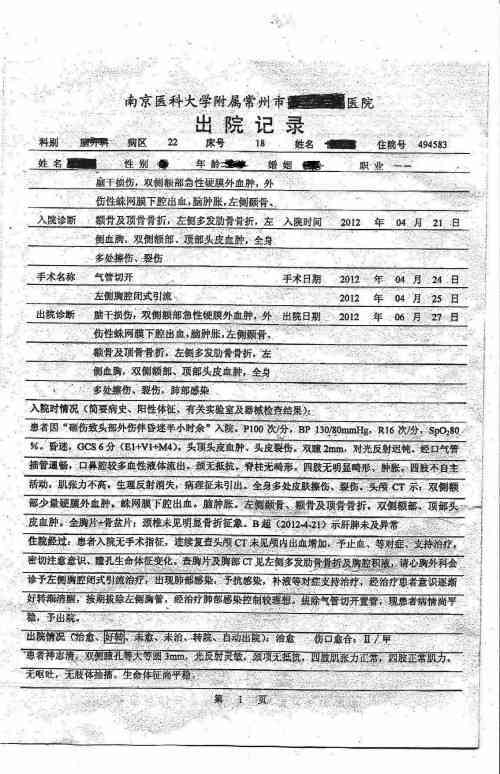 南京医科大学附属常州市 医院
出院记录
科别 脑外科 病区 22 床号 18 姓名 住院号 494583
姓名 性别 年龄 婚姻 职业 ——
脑干损伤，双侧额部急性硬膜外血肿，外
伤性蛛网膜下腔出血，脑肿胀，左侧颞骨、
入院诊断 额骨及顶骨骨折，左侧多发肋骨骨折，左 入院时间 2012 年 04 月 21 日
侧血胸，双侧额部、顶部头皮血肿，全身
多处擦伤、裂伤
手术名称 气管切开 手术日期 2012 年 04 月 24 日
左侧胸腔闭式引流 2012 年 04 月 25 日
出院诊断 脑干损伤，双侧额部急性硬膜外血肿，外 出院日期 2012 年 06 月 27 日
伤性蛛网膜下腔出血，脑肿胀，左侧颞骨，
额骨及顶骨骨折，左侧多发肋骨骨折，左
侧血胸，双侧额部、顶部头皮血肿，全身
多处擦伤、裂伤，肺部感染
入院时情况（简要病史、阳性体征、有关实验室及器械检查结果）：
患者因“砸伤致头部外伤伴昏迷半小时余”入院。P100 次/分，BP 130/80mmHg，R16 次/分，SpO₂80
%。昏迷，GCS6 分（E1+V1+M4），头顶头皮血肿、头皮裂伤，双瞳 2mm，对光反射迟钝。经口气管
插管通畅，口鼻腔较多血性液体流出，颈无抵抗，脊柱无畸形，四肢无明显畸形、肿胀，四肢不自主
活动，肌张力不高，生理反射消失，病理征未引出。全身多处皮肤擦伤、裂伤。头颅 CT 示：双侧额
部少量硬膜外血肿，蛛网膜下腔出血，脑肿胀。左侧颞骨、额骨及顶骨骨折，双侧额部、顶部头
皮血肿。全胸片+骨盆片：颈椎未见明显骨折征象。B 超（2012-4-21）示肝脾未及异常
住院经过：患者入院无手术指征，连续复查头颅 CT 未见颅内出血增加，予止血、等对症、支持治疗，
密切注意意识、瞳孔生命体征变化。查胸片及胸部 CT 见左侧多发肋骨骨折及胸腔积液，请心胸外科会
诊予左侧胸腔闭式引流治疗，出现肺部感染，予抗感染，补液等对症支持治疗，经治疗患者意识逐渐
好转渐清醒，按期拔除左侧胸管，经治疗肺部感染控制较理想，拔除气管切开置管，现患者病情尚平
稳，予出院。
出院情况（治愈、好转、未愈、未治、转院、自动出院）：治愈 伤口愈合：Ⅱ/甲
患者神志清，双侧瞳孔等大等圆 3mm，光反射灵敏，颈项无抵抗，四肢肌张力正常，四肢正常肌力，
无呕吐，无肢体抽搐，生命体征尚平稳。
第 1 页